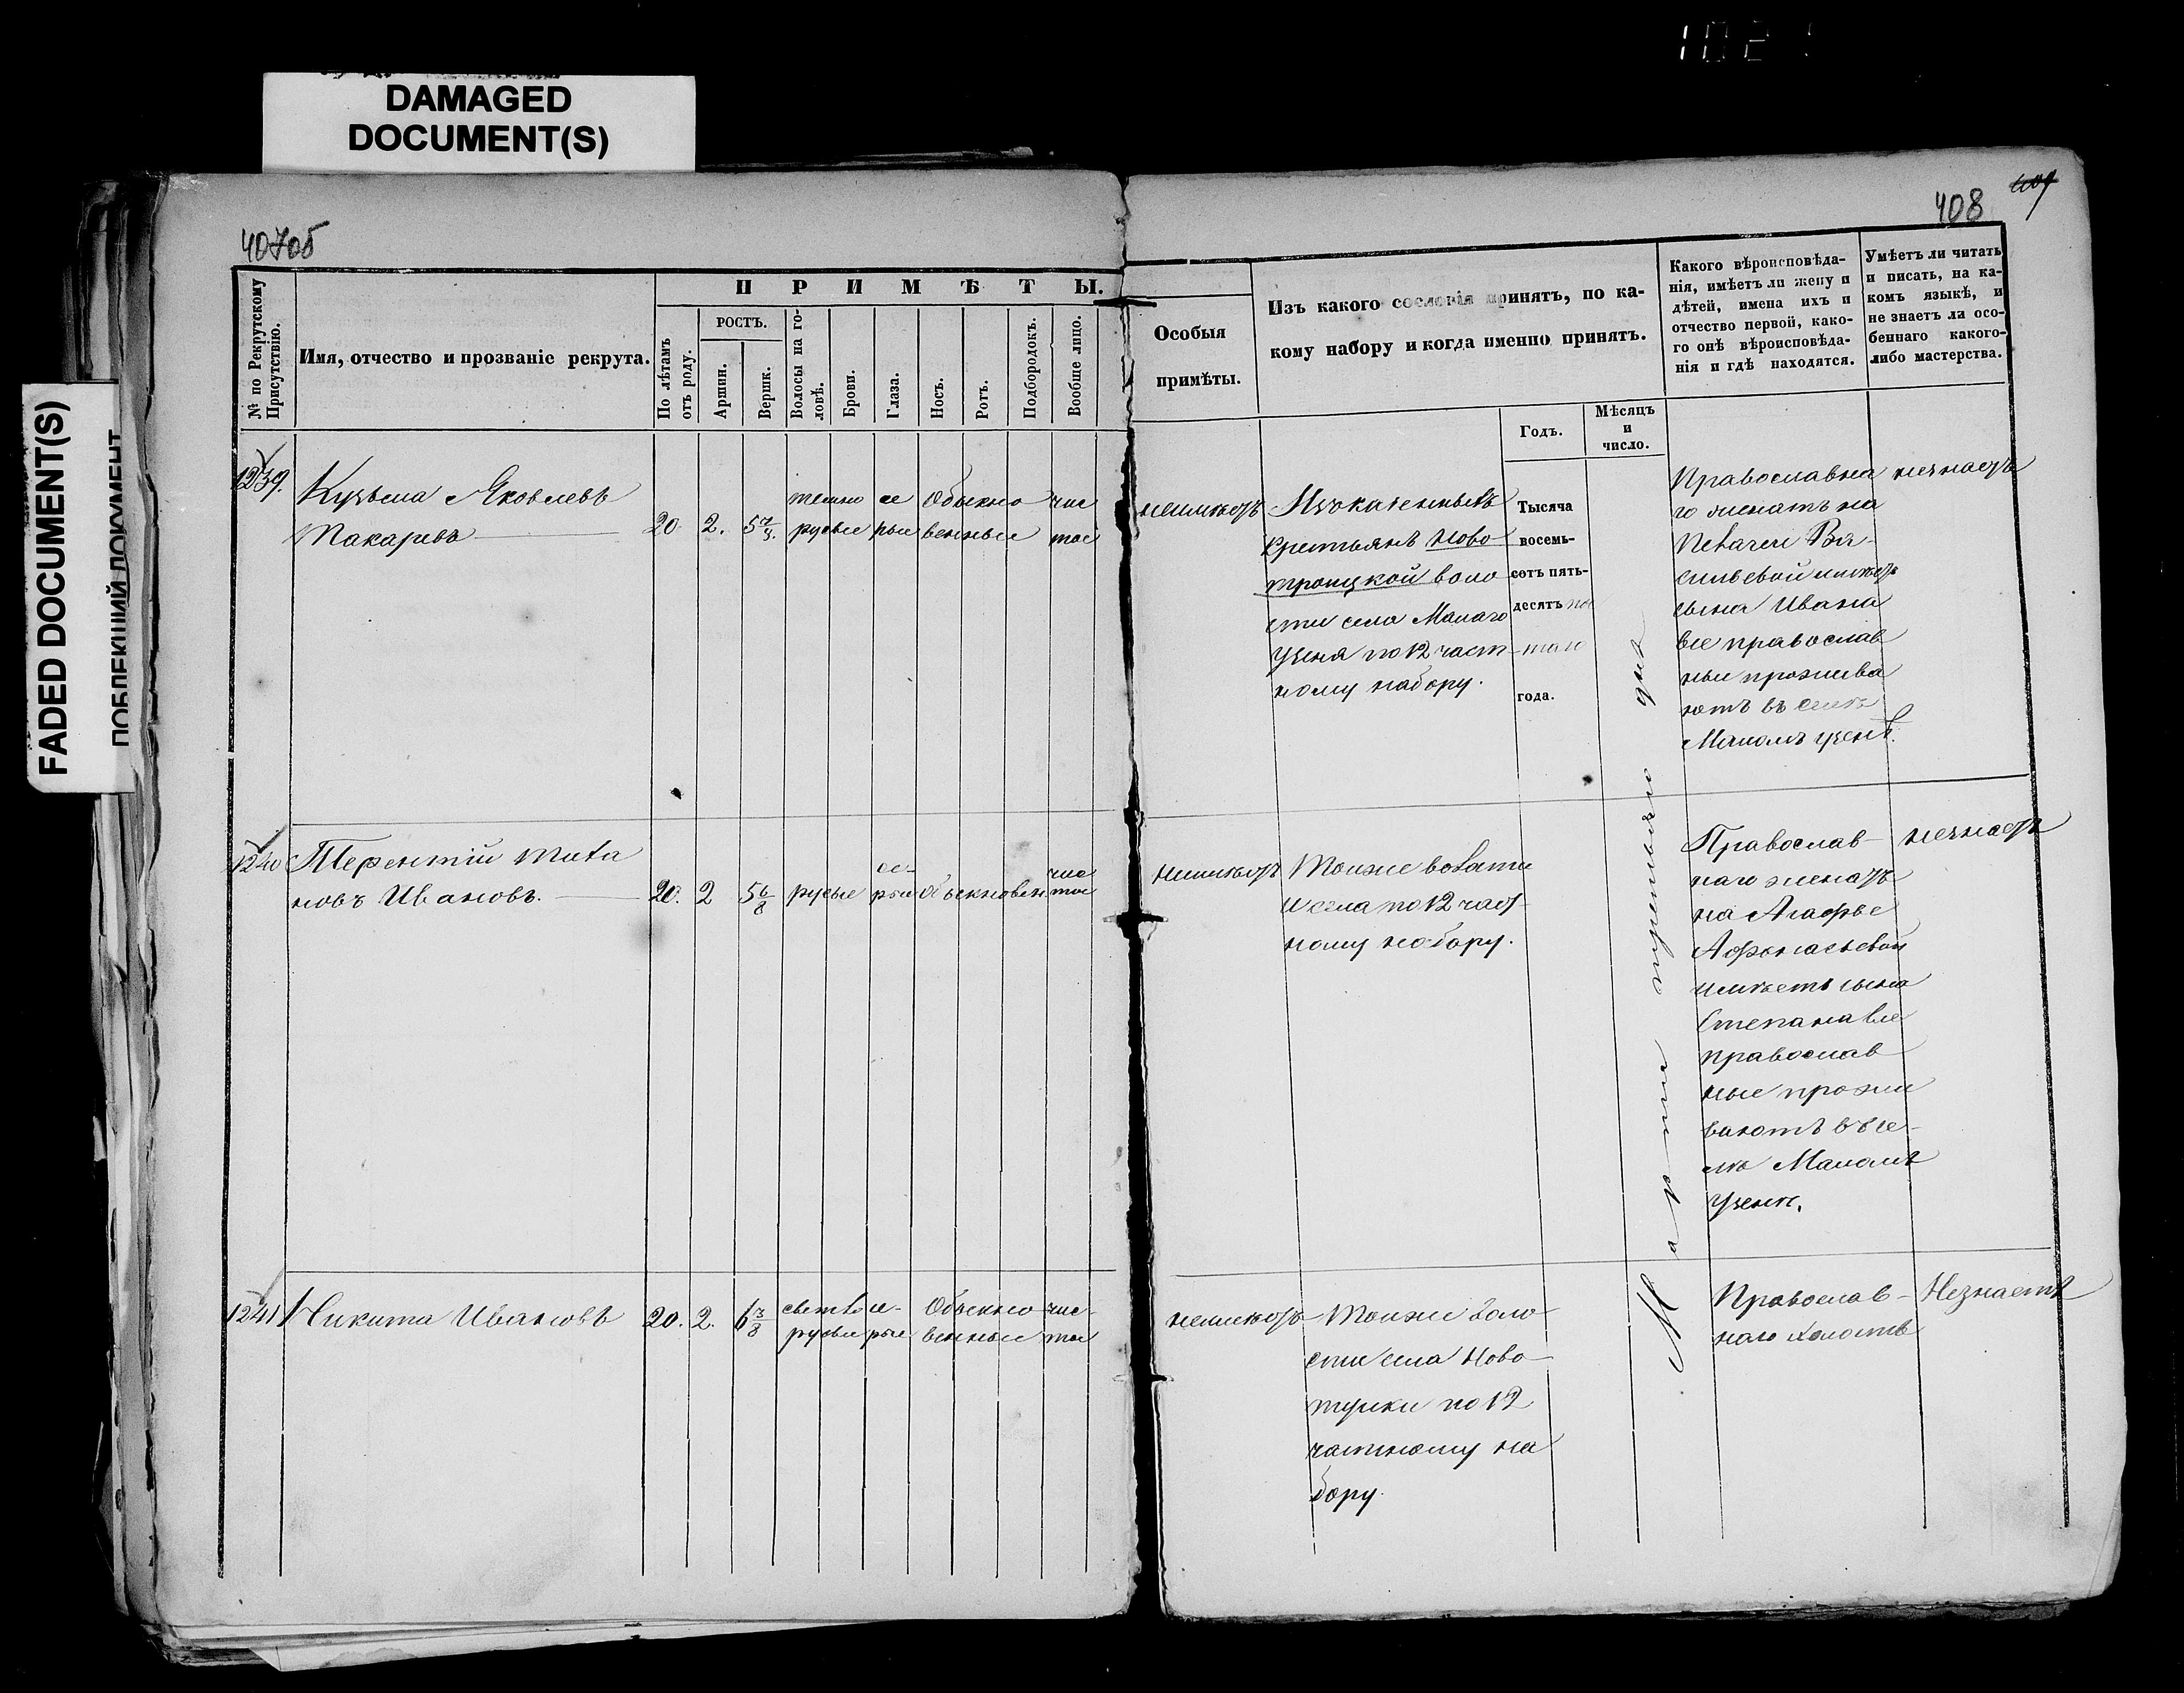 DAMAGED
DOCUMENT(S)
FADED DOCUMENT(S)
ПОБЛЕКШИЙ ДОКУМЕНТ
407об
408
№ по Рекрутскому
Присутствію.
Имя, отчество и прозваніе рекрута.
ПРИМѢТЫ.
По лѣтамъ
отъ роду.
РОСТЪ.
Аршин.
Вершк.
Волосы на го-
ловѣ.
Брови.
Глаза.
Носъ.
Ротъ.
Подбородокъ.
Вообще лицо.
Особыя
примѣты.
Изъ какого сословія принятъ, по ка-
кому набору и когда именно принятъ.
Годъ.
Мѣсяцъ
и
число.
Какого вѣроисповѣда-
нія, имѣетъ ли жену и
дѣтей, имена ихъ и
отчество первой, како-
го онѣ вѣроисповѣда-
нія и гдѣ находятся.
Умѣетъ ли читать
и писать, на ка-
комъ языкѣ, и
не знаетъ ли осо-
беннаго какого-
либо мастерства.
1239.
Кузьма Яковлевъ
Макаревъ
20
2.
5
темно
русые
се
рые
Обыкно
венные
чис
тое
неимѣетъ
Изъ казенныхъ
крестьянъ Ново
троицкой воло
сти села Малаго
Узеня по 12 част-
ному набору.
Тысяча
восемь-
сотъ пять-
десятъ пя
таго
года.
Марта третьяго дня
Православна
го женатъ на
Ва-
сильевой имѣетъ
сына Ивана
все православ
ные прожива
ютъ въ селѣ
Маломъ узенѣ.
незнаетъ
1240
Терентій
новъ Ивановъ.
20.
2
5 6/8
русые
се-
рые
Обыкновен.
чис
тое
неимѣетъ
Тойже волости
и села по 12 част-
ному набору.
Православ-
наго женатъ
на Агафье
Афонасьевой
имѣетъ сына
Степана все
православ
ные прожи
ваютъ въ се-
лѣ Маломъ
Узенѣ.
незнаетъ
1241
Никита Ивановъ
20.
2.
6 3/8
светло
русые
се-
рые
Обыкно
венные
чис-
тое
неимѣетъ
Тойже воло-
сти села Ново-
турки по 12
частному на
бору.
Православ-
наго холостъ
Незнаетъ